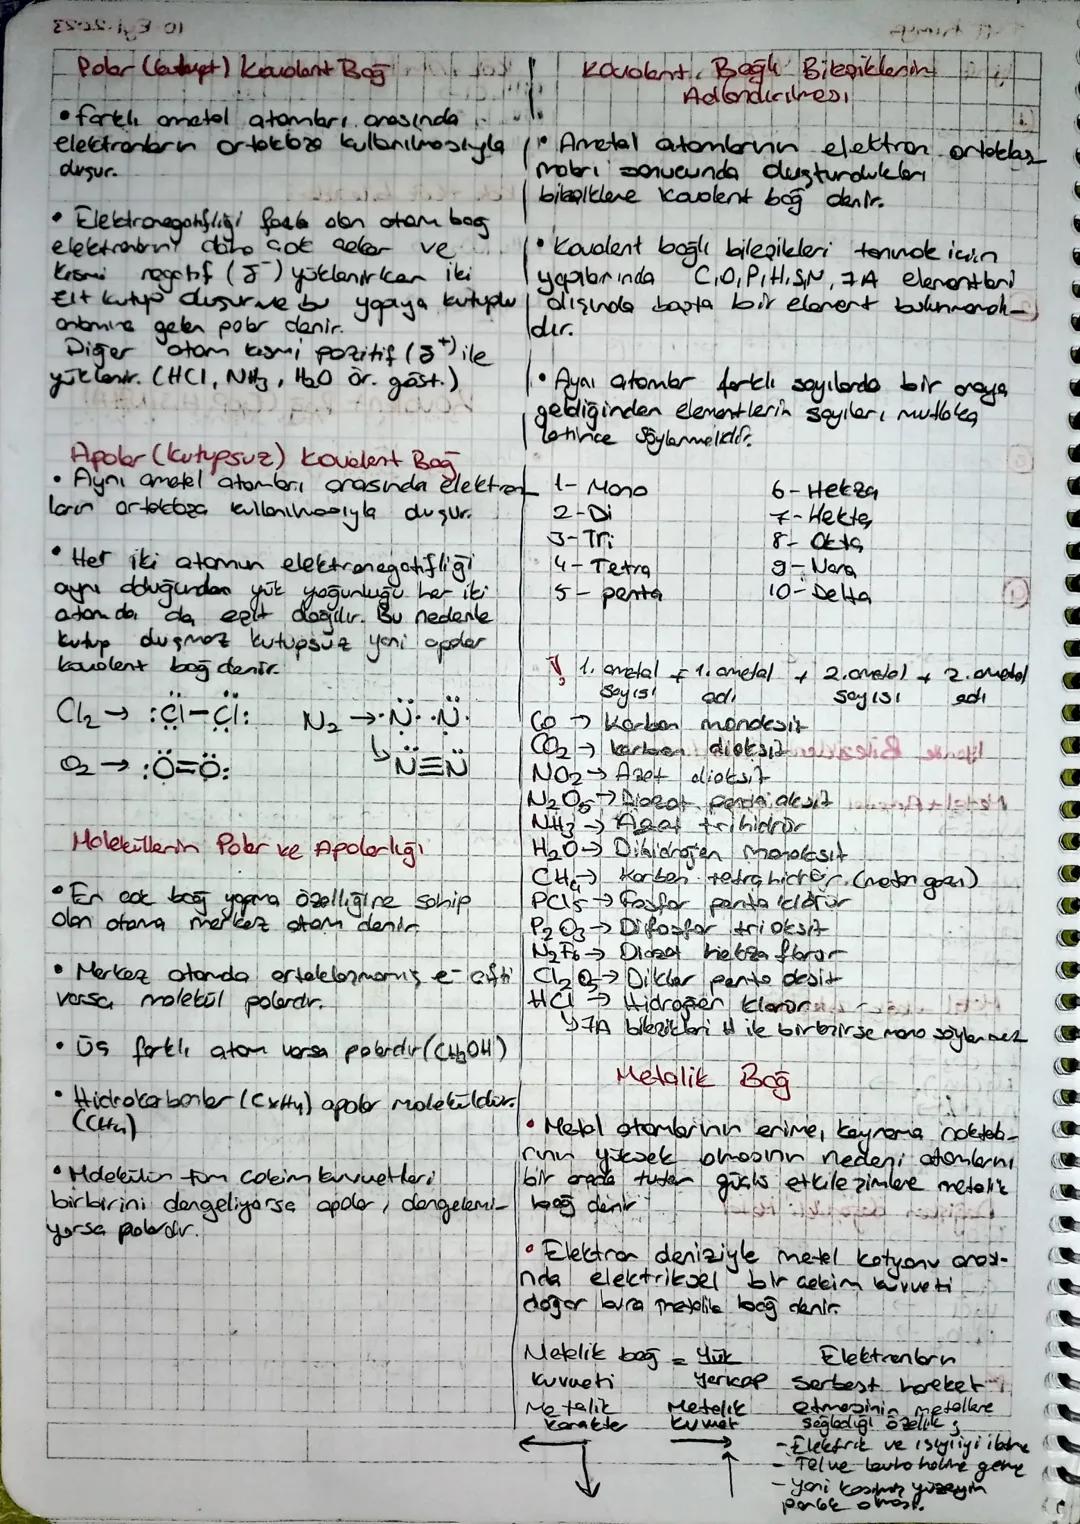 Polar (kutuplu) Kovalent Bağ
• Farklı ametal atomları arasında
elektronların ortaklaşa kullanılmasıyla
oluşur.
• Elektronegatifliği fazla olan atom bağ
elektronlarını daha çok çeker ve
kısmi negatif (δ⁻) yüklenirken iki
zıt kutup oluşur ve bu yapıya kutuplu
anlamına gelen polar denir.
Diğer atom kısmi pozitif (δ⁺) ile
yüklenir. (HCl, NH₃, H₂O ör. göst.)
Apolar (kutupsuz) Kovalent Bağ
• Aynı ametal atomları arasında elektron
ların ortaklaşa kullanılmasıyla oluşur.
• Her iki atomun elektronegatifliği
aynı olduğundan yük yoğunluğu her iki
atomda da eşit dağılır. Bu nedenle
kutup oluşmaz kutupsuz yani apolar
kovalent bağ denir.
Cl₂ → :Cl-Cl: N₂ → ·N· ·N·
O₂ → :O=O: ↳ N≡N
Moleküllerin Polar ve Apolarlığı
• En çok bağ yapma özelliğine sahip
olan atoma merkez atom denir.
• Merkez atomda ortaklaşmamış e- çifti
varsa molekül polardır.
• Üç farklı atom varsa polardır (CH₃OH)
• Hidrokarbonlar (CxHy) apolar moleküldür.
(CH₄)
• Molekülün tüm çekim kuvvetleri
birbirini dengeliyorsa apolar, dengelemi-
yorsa polardır.
Kovalent Bağlı Bileşiklerin
Adlandırılması
• Ametal atomlarının elektron ortaklaş
maları sonucunda oluşturdukları
bileşiklere kovalent bağ denir.
• Kovalent bağlı bileşikleri tanımak için
yapılarında C,O,P,H,S,N, 7A elementleri
dışında başka bir element bulunmamalı-
dır.
• Aynı atomlar farklı sayılarda bir araya
geldiğinden elementlerin sayıları mutlaka
latince söylenmelidir.
1- Mono 6- Hekza
2- Di 7- Hekta
3- Tri 8- Okta
4- Tetra 9- Nona
5- penta 10- Delta
! 1. ametal + 1. ametal + 2. ametal + 2. ametal
sayısı adı sayısı adı
CO → Karbon monoksit
CO₂ → karbon dioksit
NO₂ → Azot dioksit
N₂O₅ → Diazot penta oksit
NH₃ → Azot trihidrür
H₂O → Dihidrojen monoksit
CH₄ → Karbon tetra hidrür (metan gazı)
PCl₅ → Fosfor penta klorür
P₂O₃ → Difosfor trioksit
N₂F₆ → Diazot hekza florür
Cl₂O₅ → Diklor penta oksit
HCl → Hidrojen klorür
↳ 7A bileşikleri H ile birleşirse mono söylenmez
Metalik Bağ
• Metal atomlarının erime, kaynama noktala-
rının yüksek olmasının nedeni atomlarını
bir arada tutan güçlü etkileşimlere metalik
bağ denir
• Elektron deniziyle metal katyonu arası-
nda elektriksel bir çekim kuvveti
doğar buna metalik bağ denir.
Metalik bağ = Yük
kuvveti yarıçap
Metalik Metalik
karakter kuvvet
Elektronların
serbest hareket
etmesinin metallere
sağladığı özellik;
- Elektrik ve ısıyı iyi iletme
- Tel ve levha haline gelme
- yeni kesilmiş yüzeyin
parlak olması.